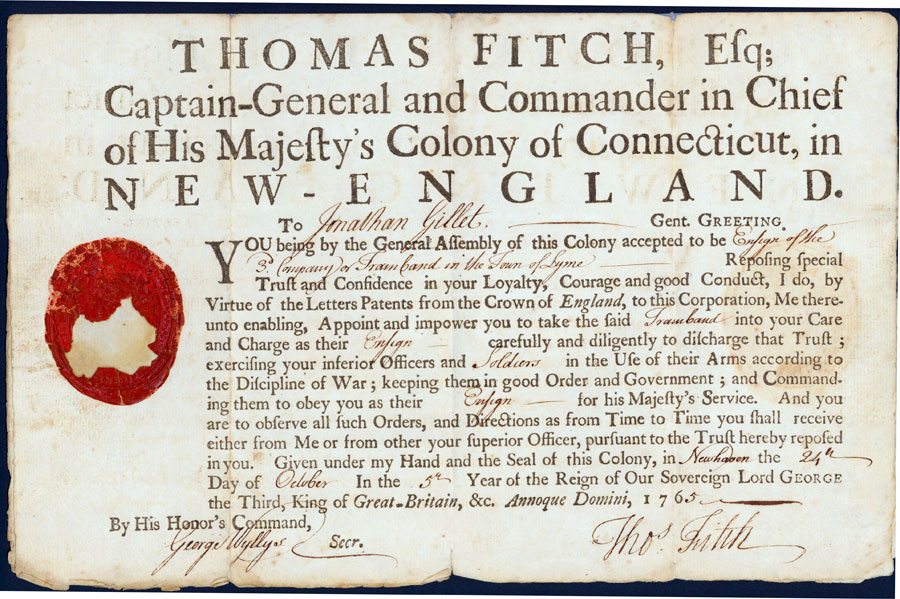 THOMAS FITCH, Eſq;
Captain-General and Commander in Chief
of His Majeſty's Colony of Connecticut, in
NEW-ENGLAND.
To Jonathan Gillet. Gent. GREETING.
YOU being by the General Aſſembly of this Colony accepted to be Ensign of the
3d. Company or Trainband in the Town of Lyme Repoſing ſpecial
Truſt and Confidence in your Loyalty, Courage and good Conduct, I do, by
Virtue of the Letters Patents from the Crown of England, to this Corporation, Me there-
unto enabling, Appoint and impower you to take the ſaid Trainband into your Care
and Charge as their Ensign carefully and diligently to diſcharge that Truſt;
exerciſing your inferior Officers and Soldiers in the Uſe of their Arms according to
the Diſcipline of War; keeping them in good Order and Government; and Command-
ing them to obey you as their Ensign for his Majeſty's Service. And you
are to obſerve all ſuch Orders, and Directions as from Time to Time you ſhall receive
either from Me or from other your ſuperior Officer, purſuant to the Truſt hereby repoſed
in you. Given under my Hand and the Seal of this Colony, in Newhaven the 24th
Day of October In the 5th Year of the Reign of Our Sovereign Lord GEORGE
the Third, King of Great-Britain, &c. Annoque Domini, 1765
By His Honor's Command,
George Wyllys Secr. Thos Fitch